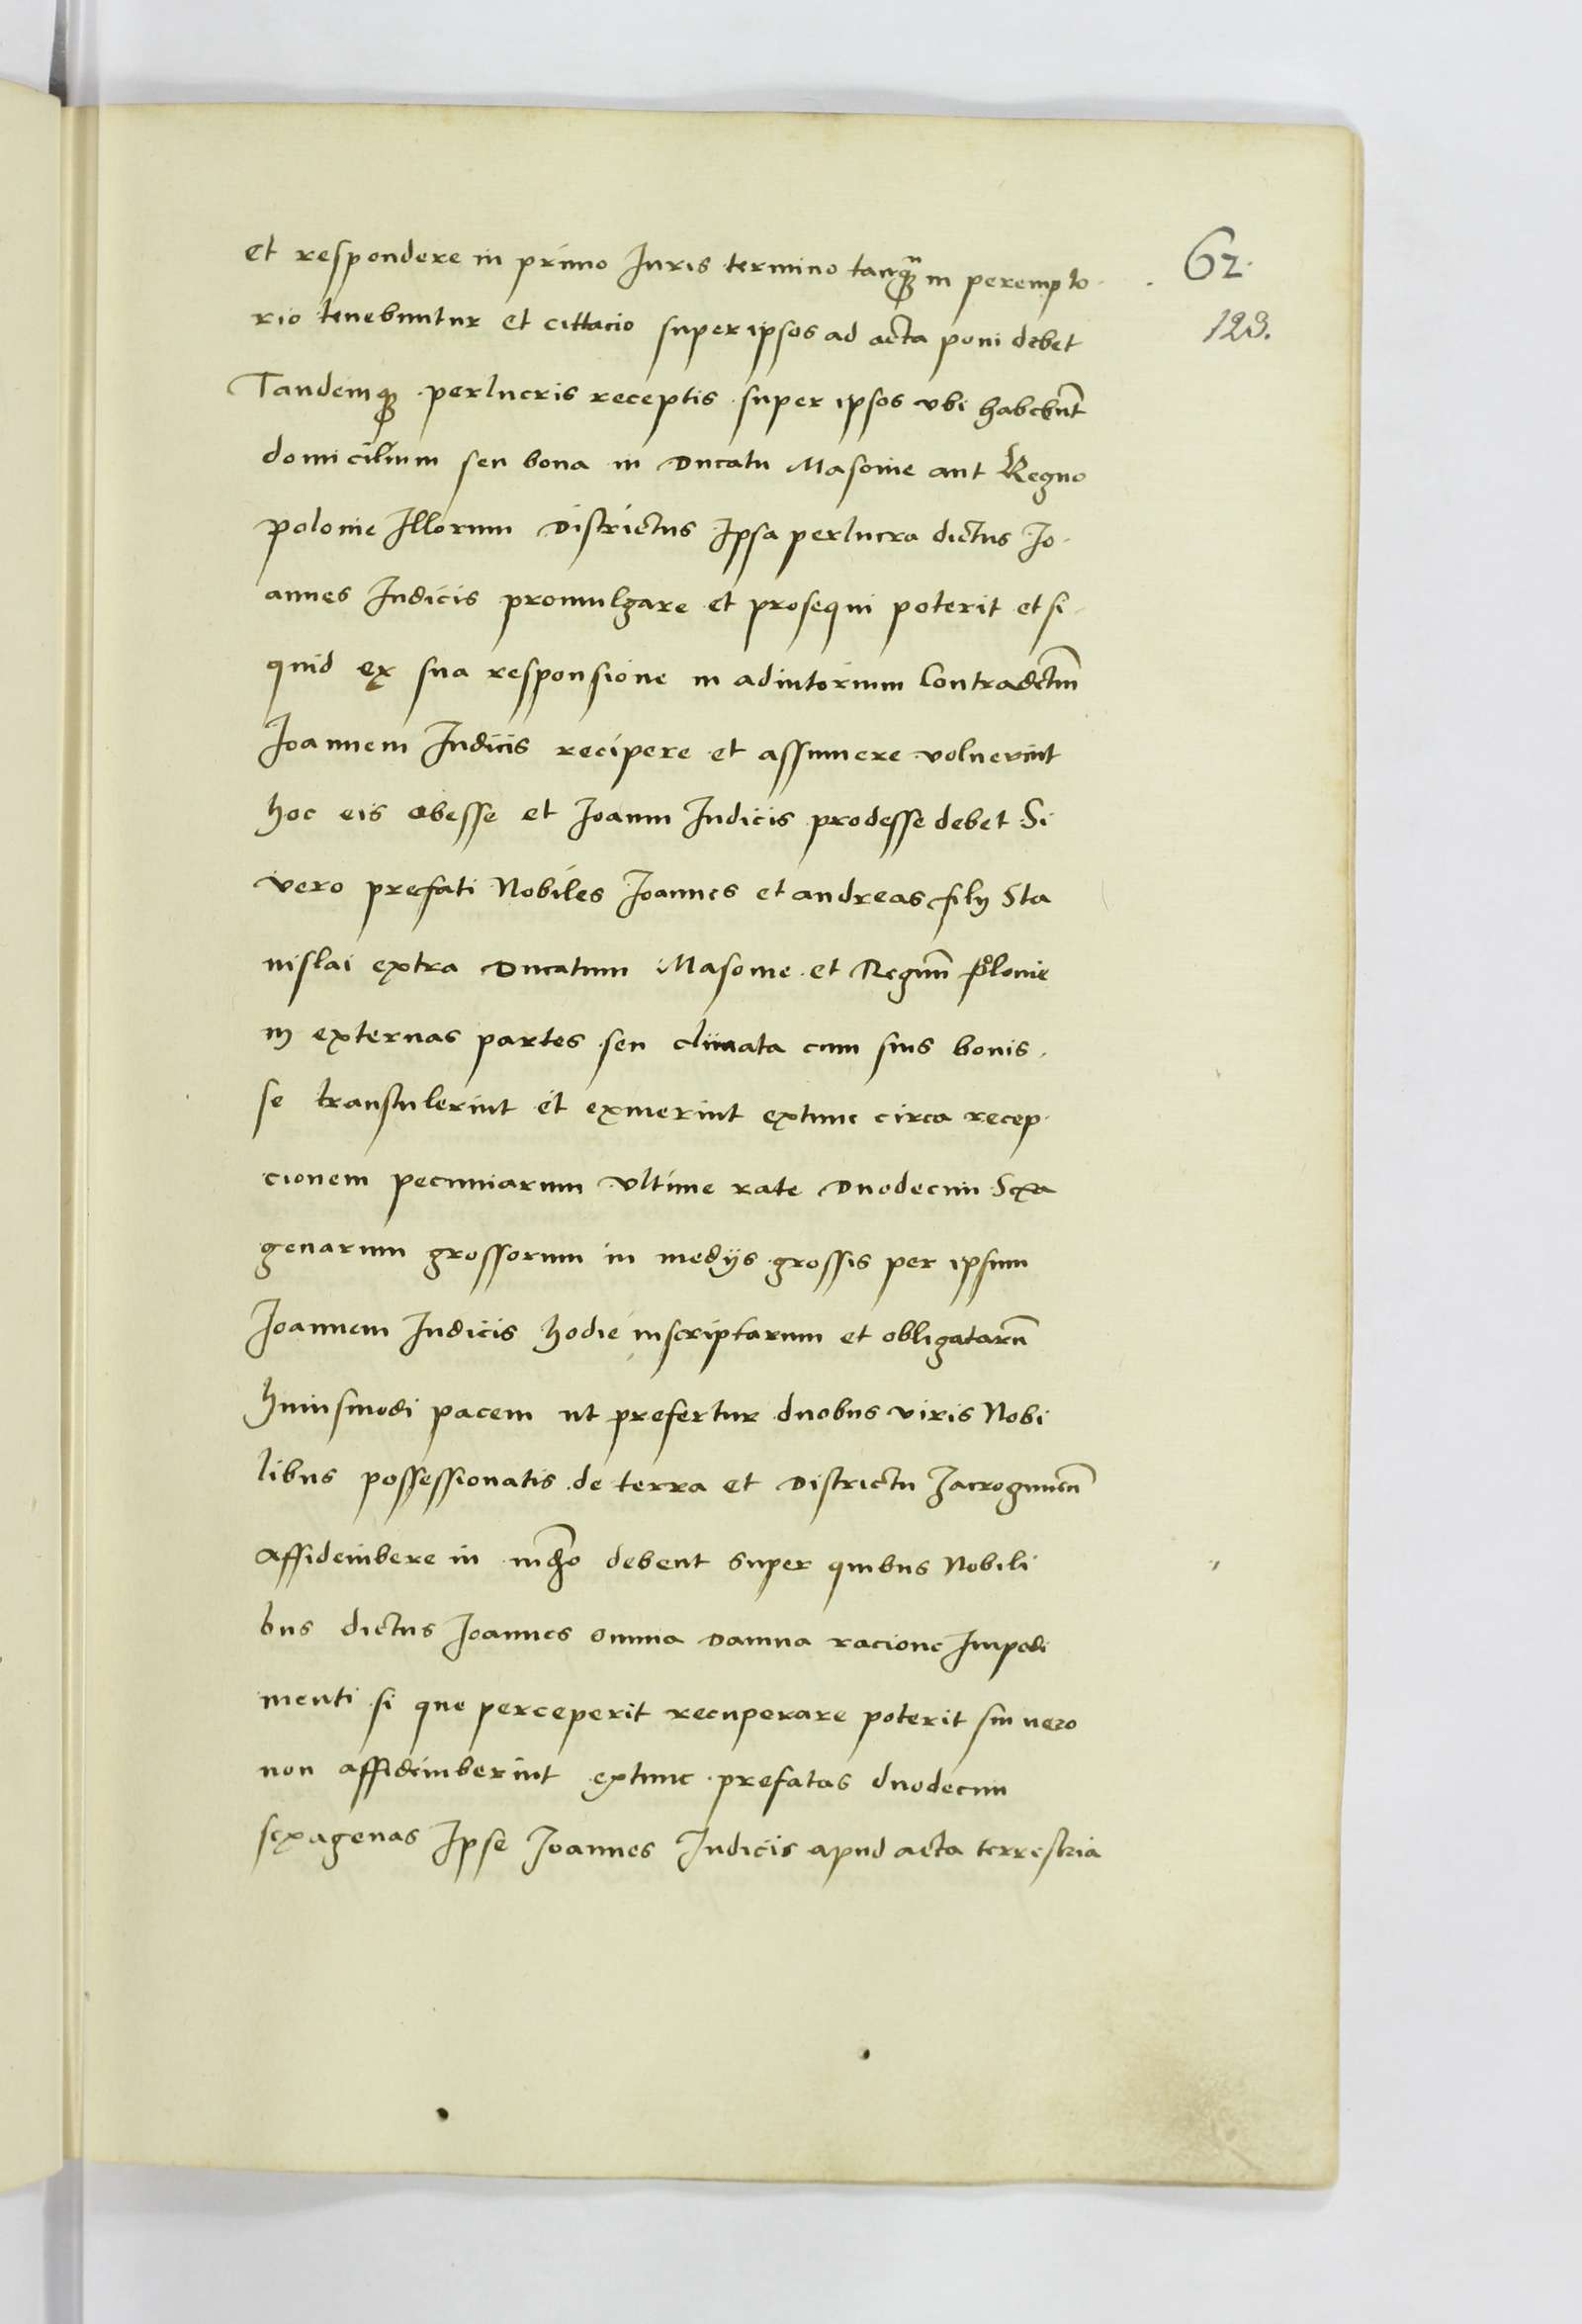 et respondere in primo Iuris termino tanq̃ in perempto-
62.
rio tenebuntur et cittacio super ipsos ad acta poni debet
123.
Tandemq perlucris receptis super ipsos vbi habebunt
domicilium seu bona in Ducatu Masouie aut Regno
polonie Illorum Districtus Ipsa perlucra dictus Io-
annes Iudicis promulgare et prosequi poterit et si-
quid ex sua responsione in adiutorium Contradictum
Ioannem Iudicis recipere et assumere voluerint
hoc eis obesse et Ioanni Iudicis prodesse debet Si
vero prefati Nobiles Ioannes et andreas filij Sta
nislai extra Ducatum Masouie et Regnũ polonie
in externas partes seu climata cum suis bonis
se transtulerint et exiuerint extunc circa recep-
cionem pecuniarum vltime rate Duodecim Sexa
genarum grossorum in medijs grossis per ipsum
Ioannem Iudicis hodie inscriptarum et obligatarũ
huiusmodi pacem ut prefertur duobus viris Nobi
libus possessionatis de terra et Districtu Zacrogimen̄
affideiubere in debent super quibus Nobili
bus dictus Ioannes omnia Damna racione Impedi
menti si que perceperit recuperare poterit sin uero
non affideiuberint extunc prefatas duodecim
sexagenas Ipse Ioannes Iudicis apud acta terrestria